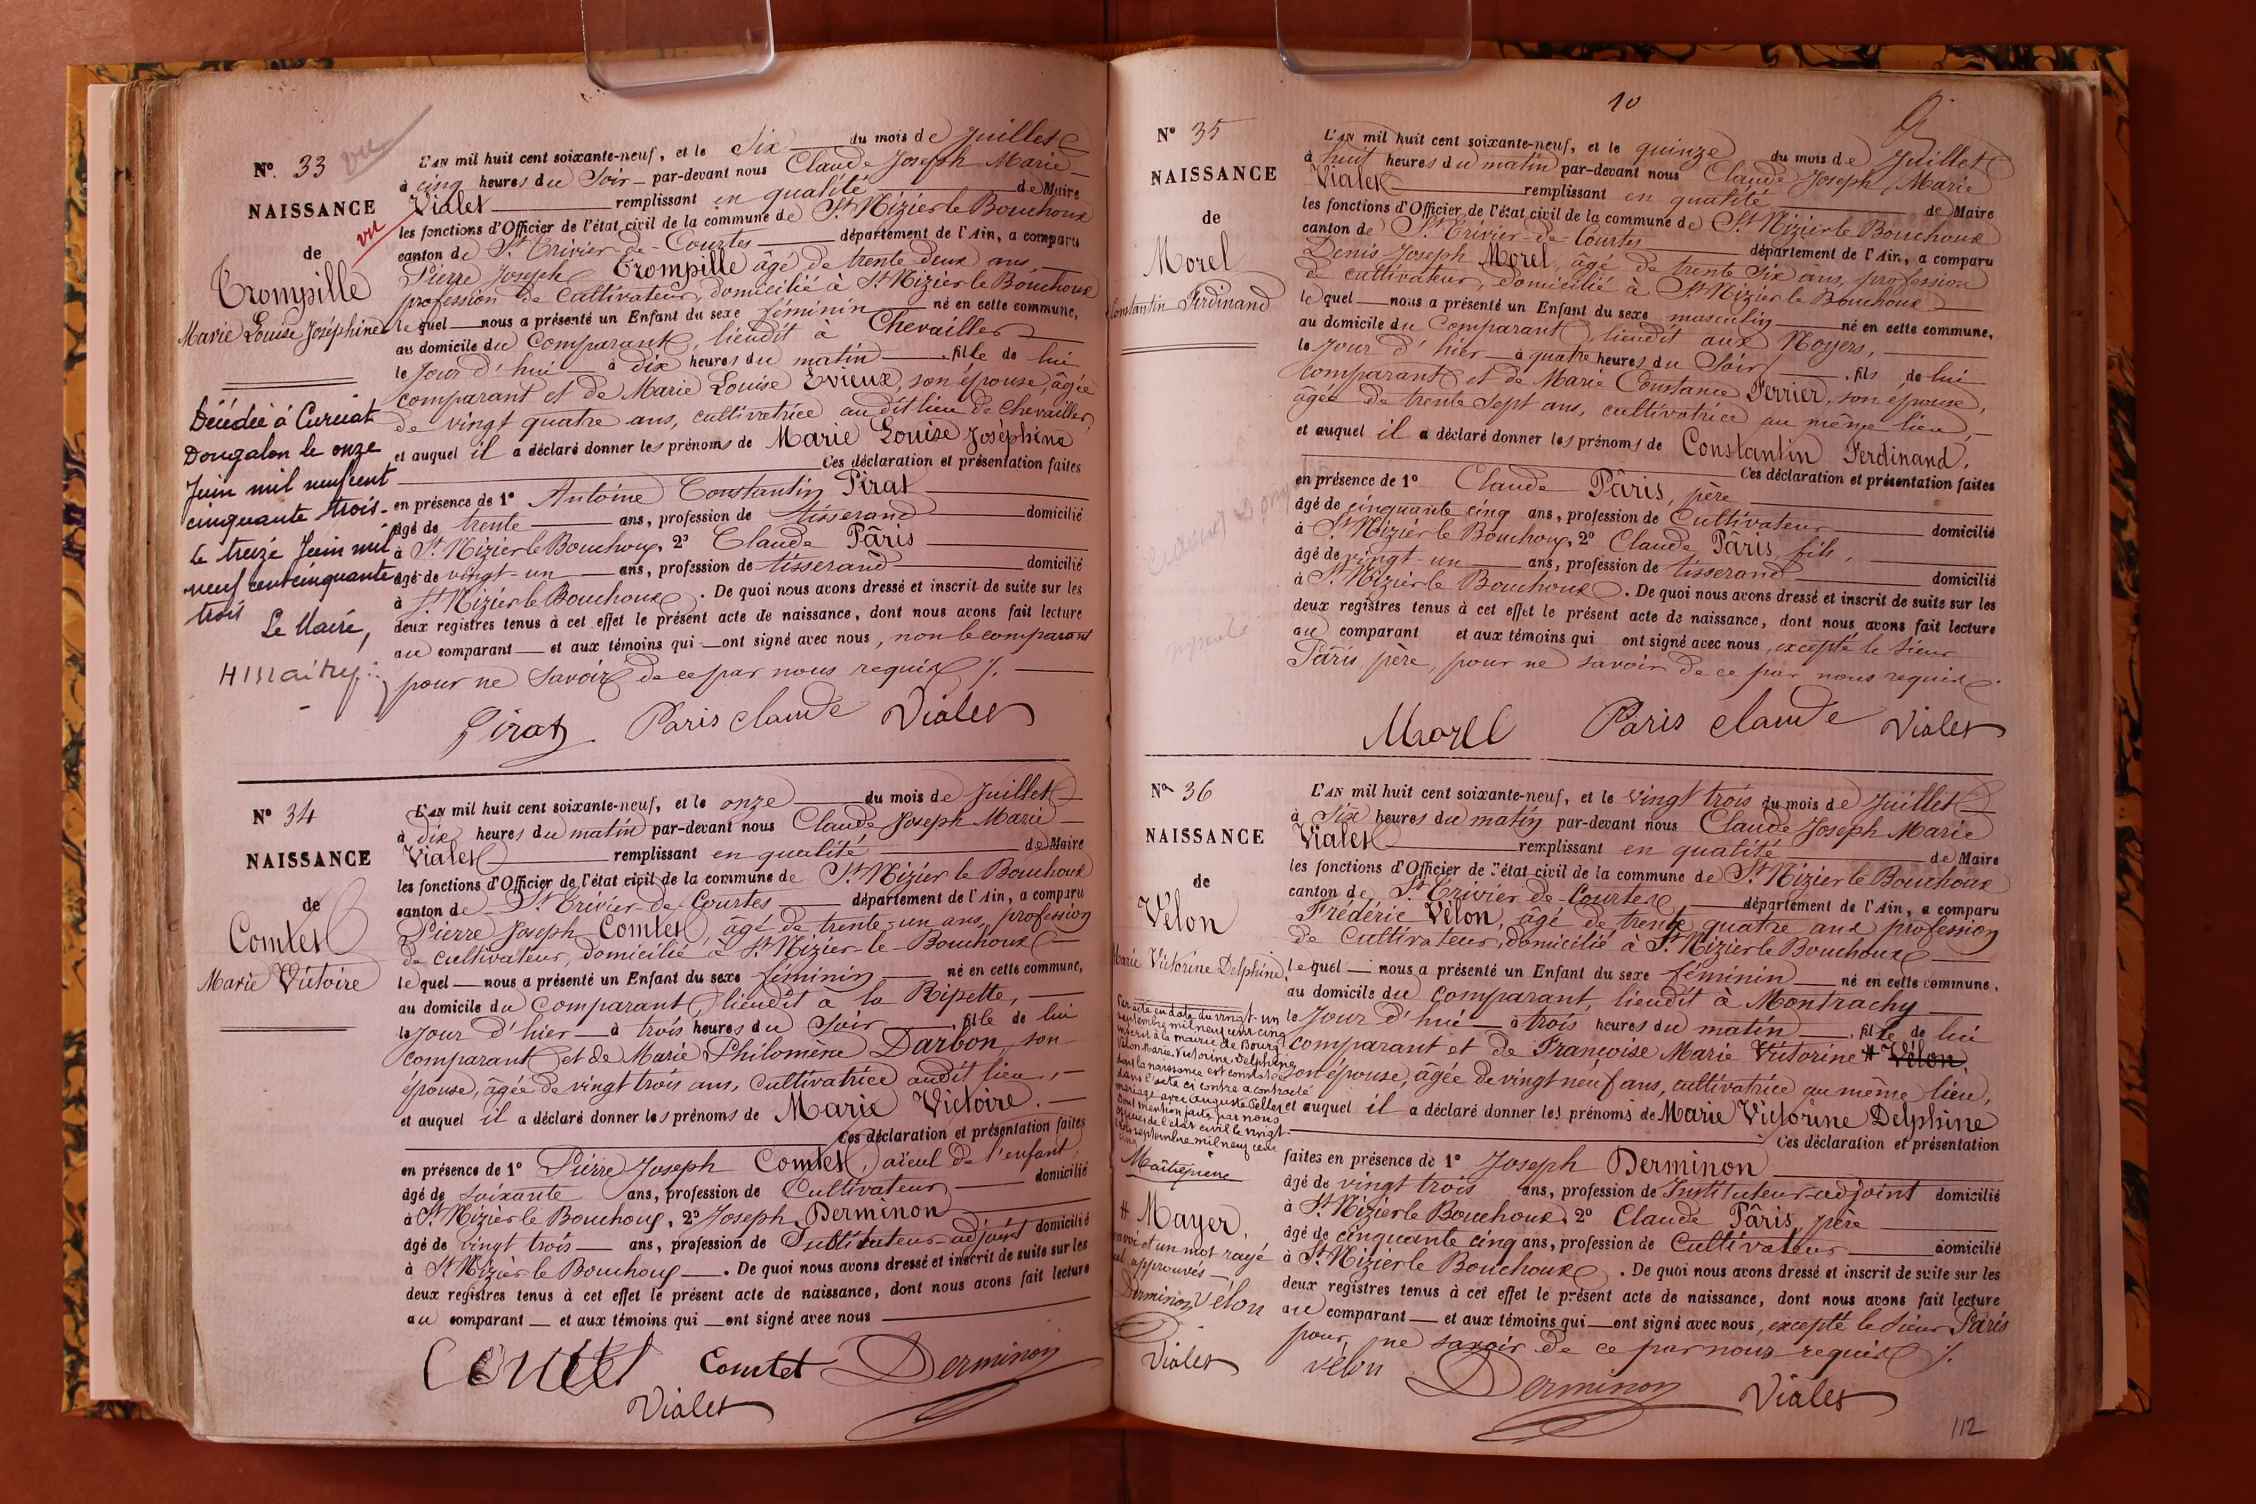 N° 33
vu
NAISSANCE
vu
de
Trompille
Marie Louise Joséphine
Décédée à Curciat
Dongalon le onze
Juin mil neuf cent
cinquante trois.
Le treize Juin mil
neuf cent cinquante
trois
Le Maire,
L'AN mil huit cent soixante-neuf, et le Six du mois de Juillet
à cinq heures du Soir par-devant nous Claude Joseph Marie
Vialet remplissant en qualité de Maire
les fonctions d'Officier de l'état civil de la commune de St Nizier le Bouchoux
canton de St Trivier-de-Courtes département de l'Ain, a comparu
Pierre Joseph Trompille âgé de trente deux ans,
profession de cultivateur, domicilié à St Nizier le Bouchoux
lequel nous a présenté un Enfant du sexe féminin né en cette commune,
au domicile du comparant, lieudit à Chevailler
le jour d'hui à dix heures du matin fille de lui
comparant et de Marie Louise Evieux, son épouse, âgée
de vingt quatre ans, cultivatrice au dit lieu de Chevailler,
et auquel il a déclaré donner les prénoms de Marie Louise Joséphine
Ces déclaration et présentation faites
en présence de 1° Antoine Constantin Pirat
âgé de trente ans, profession de tisserand domicilié
à St Nizier le Bouchoux, 2° Claude Pâris
âgé de vingt-un ans, profession de tisserand domicilié
à St Nizier le Bouchoux. De quoi nous avons dressé et inscrit de suite sur les
deux registres tenus à cet effet le présent acte de naissance, dont nous avons fait lecture
au comparant et aux témoins qui ont signé avec nous, non le comparant
pour ne savoir de ce par nous requis /.
Pirat Paris claude Vialet
N° 34
NAISSANCE
de
Comtet
Marie Victoire
L'AN mil huit cent soixante-neuf, et le onze du mois de Juillet
à dix heures du matin par-devant nous Claude Joseph Marie
Vialet remplissant en qualité de Maire
les fonctions d'Officier de l'état civil de la commune de St Nizier le Bouchoux
canton de St Trivier-de-Courtes département de l'Ain, a comparu
Pierre Joseph Comtet, âgé de trente-un ans, profession
de cultivateur, domicilié à St Nizier-le-Bouchoux
lequel nous a présenté un Enfant du sexe féminin né en cette commune,
au domicile du comparant, lieudit à la Ripette,
le jour d'hier à trois heures du Soir, fille de lui
comparant et de Marie Philomène Darbon, son
épouse, âgée de vingt trois ans, cultivatrice audit lieu,
et auquel il a déclaré donner les prénoms de Marie Victoire.
Ces déclaration et présentation faites
en présence de 1° Pierre Joseph Comtet, aïeul de l'enfant,
âgé de soixante ans, profession de Cultivateur domicilié
à St Nizier le Bouchoux, 2° Joseph Derminon
âgé de vingt trois ans, profession de Instituteur-adjoint domicilié
à St Nizier le Bouchoux. De quoi nous avons dressé et inscrit de suite sur les
deux registres tenus à cet effet le présent acte de naissance, dont nous avons fait lecture
au comparant et aux témoins qui ont signé avec nous
Comtet Comtet Derminon
Vialet
10
N° 35
NAISSANCE
de
Morel
Constantin Ferdinand
L'AN mil huit cent soixante-neuf, et le quinze du mois de Juillet
à huit heures du matin par-devant nous Claude Joseph Marie
Vialet remplissant en qualité de Maire
les fonctions d'Officier de l'état civil de la commune de St Nizier le Bouchoux
canton de St Trivier-de-Courtes département de l'Ain, a comparu
Denis Joseph Morel, âgé de trente six ans, profession
de cultivateur, domicilié à St Nizier le Bouchoux
lequel nous a présenté un Enfant du sexe masculin né en cette commune,
au domicile du comparant, lieudit aux Noyers,
le jour d'hier à quatre heures du Soir, fils de lui
comparant et de Marie Constance Perrier, son épouse,
âgée de trente sept ans, cultivatrice au même lieu,
et auquel il a déclaré donner les prénoms de Constantin Ferdinand.
Ces déclaration et présentation faites
en présence de 1° Claude Pâris, père
âgé de cinquante cinq ans, profession de Cultivateur domicilié
à St Nizier le Bouchoux, 2° Claude Pâris, fils,
âgé de vingt-un ans, profession de tisserand domicilié
à St Nizier le Bouchoux. De quoi nous avons dressé et inscrit de suite sur les
deux registres tenus à cet effet le présent acte de naissance, dont nous avons fait lecture
au comparant et aux témoins qui ont signé avec nous, excepté le sieur
Pâris, père, pour ne savoir de ce par nous requis.
Morel Paris claude Vialet
N° 36
NAISSANCE
de
Vélon
Marie Victorine Delphine
Par acte en date du vingt-un
septembre mil neuf cent cinq
inscrit à la mairie de Bourg
Vélon Marie Victorine Delphine
dont la naissance est constatée
dans l'acte ci contre a contracté
mariage avec Auguste Pellet
Dont mention faite par nous
officier de l'état civil le vingt-
septembre mil neuf cent
cinq
# Mayer,
renvoi et un mot rayé
nul approuvés
Derminon Vélon
Vialet
L'AN mil huit cent soixante-neuf, et le vingt trois du mois de Juillet
à Six heures du matin par-devant nous Claude Joseph Marie
Vialet remplissant en qualité de Maire
les fonctions d'Officier de l'état civil de la commune de St Nizier le Bouchoux
canton de St Trivier-de-Courtes département de l'Ain, a comparu
Frédéric Vélon, âgé de trente quatre ans profession
de cultivateur, domicilié à St Nizier le Bouchoux
lequel nous a présenté un Enfant du sexe féminin né en cette commune,
au domicile du comparant, lieudit à Montrachy
le jour d'hui à trois heures du matin, fille de lui
comparant et de Françoise Marie Victorine # Vélon,
son épouse, âgée de vingt neuf ans, cultivatrice au même lieu,
et auquel il a déclaré donner les prénoms de Marie Victorine Delphine
Ces déclaration et présentation
faites en présence de 1° Joseph Derminon
âgé de vingt trois ans, profession de Instituteur-adjoint domicilié
à St Nizier le Bouchoux, 2° Claude Pâris, père
âgé de cinquante cinq ans, profession de Cultivateur domicilié
à St Nizier le Bouchoux. De quoi nous avons dressé et inscrit de suite sur les
deux registres tenus à cet effet le présent acte de naissance, dont nous avons fait lecture
au comparant et aux témoins qui ont signé avec nous, excepté le sieur Pâris
pour ne savoir de ce par nous requis /.
Vélon Derminon Vialet
112